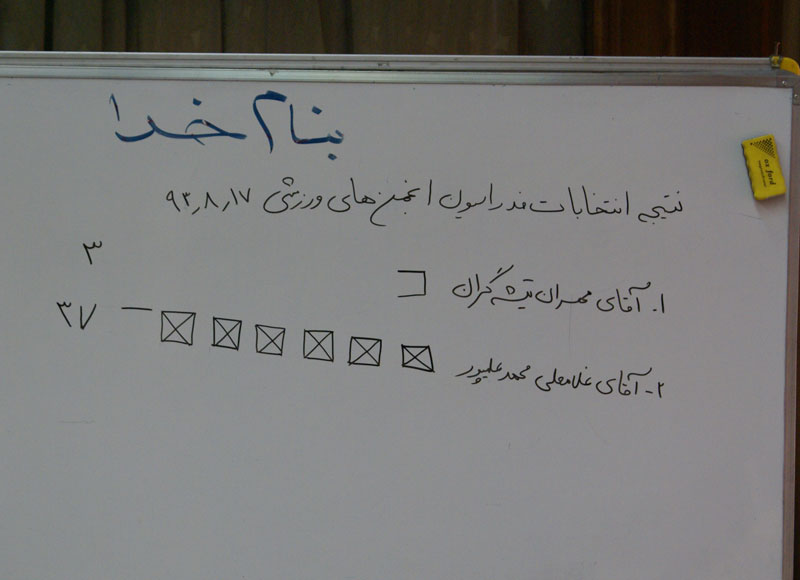 بنام خدا
نتیجه انتخابات فدراسیون انجمن های ورزشی ۹۳٫۸٫۱۷
۱. آقای مهران تیشه گران ۳
۲- آقای غلامعلی محمد علیپور ۳۷